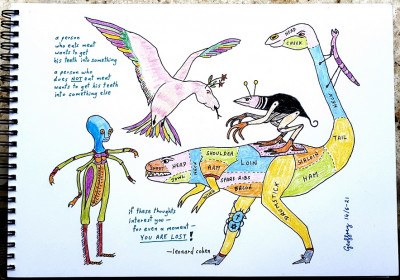 a person
who eats meat
wants to get
his teeth into something
a person who
does NOT eat meat
wants to get his teeth
into something else
if these thoughts
interest you —
for even a moment —
YOU ARE LOST!
—leonard cohen
HEAD
CHEEK
TAIL
SHOULDER
HEAD
JOWL
HAM
LOIN
SPARE RIBS
BACON
SIRLOIN
HAM
DRUMSTICK
10/5-21